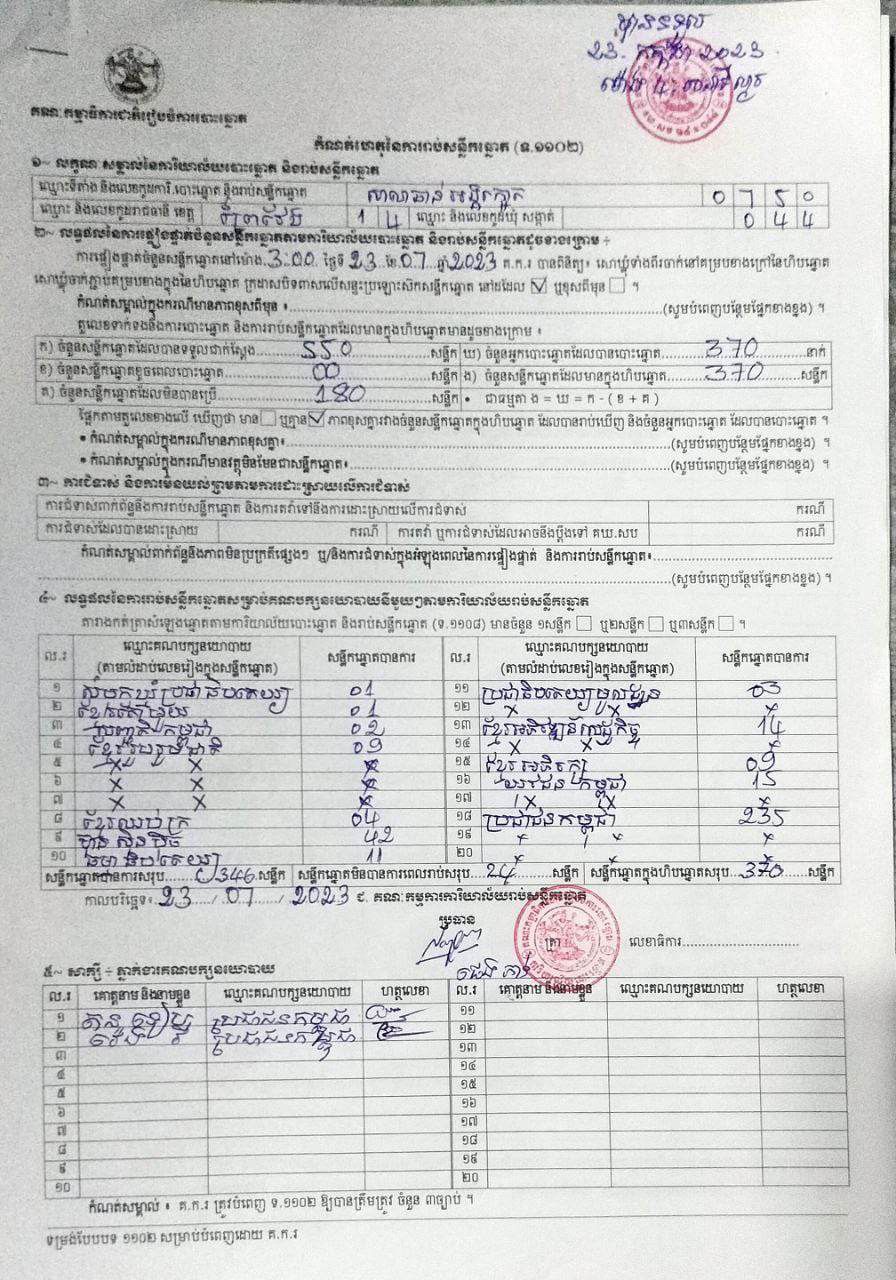 បានទទួល
23. កក្កដា 2023
ម៉ោង 4:
គណៈកម្មាធិការជាតិរៀបចំការបោះឆ្នោត
កំណត់ហេតុនៃការរាប់សន្លឹកឆ្នោត (ទ.១១០២)
១~ លក្ខណៈសម្គាល់នៃការិយាល័យបោះឆ្នោត និងរាប់សន្លឹកឆ្នោត
ឈ្មោះទីតាំង និងលេខកូដការិ.បោះឆ្នោត និងរាប់សន្លឹកឆ្នោត សាលាឆាន់ 0 7 5 0
ឈ្មោះ និងលេខកូដរាជធានី ខេត្ត ព្រៃវែង 1 4 ឈ្មោះ និងលេខកូដឃុំ សង្កាត់ 0 4 4
២~ លទ្ធផលនៃការផ្ទៀងផ្ទាត់ចំនួនសន្លឹកឆ្នោតតាមការិយាល័យបោះឆ្នោត និងរាប់សន្លឹកឆ្នោតដូចខាងក្រោម ÷
ការផ្ទៀងផ្ទាត់ចំនួនសន្លឹកឆ្នោតនៅម៉ោង 3:00 ថ្ងៃទី 23 ខែ 07 ឆ្នាំ 2023 គ.ក.រ បានពិនិត្យ៖ សោឃ្លុំទាំងពីរចាក់នៅគម្របខាងក្រៅនៃហិបឆ្នោត
សោឃ្លុំចាក់ភ្ជាប់គម្របខាងក្នុងនៃហិបឆ្នោត ក្រដាសបិទពាសលើសន្ទះប្រឡោះស៊កសន្លឹកឆ្នោត នៅដដែល ☑ ឬខុសពីមុន ☐ ។
កំណត់សម្គាល់ក្នុងករណីមានភាពខុសពីមុន ៖ (សូមបំពេញបន្ថែមផ្នែកខាងខ្នង) ។
តួលេខទាក់ទងនឹងការបោះឆ្នោត និងការរាប់សន្លឹកឆ្នោតដែលមានក្នុងហិបឆ្នោតមានដូចខាងក្រោម ៖
ក) ចំនួនសន្លឹកឆ្នោតដែលបានទទួលជាក់ស្តែង 550 សន្លឹក ឃ) ចំនួនអ្នកបោះឆ្នោតដែលបានបោះឆ្នោត 370 នាក់
ខ) ចំនួនសន្លឹកឆ្នោតខូចពេលបោះឆ្នោត 00 សន្លឹក ង) ចំនួនសន្លឹកឆ្នោតដែលមានក្នុងហិបឆ្នោត 370 សន្លឹក
គ) ចំនួនសន្លឹកឆ្នោតដែលមិនបានប្រើ 180 សន្លឹក • ជាធម្មតា ង = ឃ = ក - ( ខ + គ )
ផ្អែកតាមតួលេខខាងលើ ឃើញថា មាន ☐ ឬគ្មាន ☑ ភាពខុសគ្នារវាងចំនួនសន្លឹកឆ្នោតក្នុងហិបឆ្នោត ដែលបានរាប់ឃើញ និងចំនួនអ្នកបោះឆ្នោត ដែលបានបោះឆ្នោត ។
• កំណត់សម្គាល់ក្នុងករណីមានភាពខុសគ្នា៖ (សូមបំពេញបន្ថែមផ្នែកខាងខ្នង) ។
• កំណត់សម្គាល់ក្នុងករណីមានវត្ថុមិនមែនជាសន្លឹកឆ្នោត៖ (សូមបំពេញបន្ថែមផ្នែកខាងខ្នង) ។
៣~ ការជំទាស់ និងការមិនយល់ព្រមតាមការដោះស្រាយលើការជំទាស់
ការជំទាស់ពាក់ព័ន្ធនឹងការរាប់សន្លឹកឆ្នោត និងការតវ៉ាទៅនឹងការដោះស្រាយលើការជំទាស់ ករណី
ការជំទាស់ដែលបានដោះស្រាយ ករណី ការតវ៉ា ឬការជំទាស់ដែលអាចនឹងប្តឹងទៅ គឃ.សប ករណី
កំណត់សម្គាល់ពាក់ព័ន្ធនឹងភាពមិនប្រក្រតីផ្សេងៗ ឬ/និងការជំទាស់ក្នុងអំឡុងពេលនៃការផ្ទៀងផ្ទាត់ និងការរាប់សន្លឹកឆ្នោត៖
(សូមបំពេញបន្ថែមផ្នែកខាងខ្នង) ។
៤~ លទ្ធផលនៃការរាប់សន្លឹកឆ្នោតសម្រាប់គណបក្សនយោបាយនីមួយៗតាមការិយាល័យរាប់សន្លឹកឆ្នោត
តារាងកត់ត្រាសំឡេងឆ្នោតតាមការិយាល័យបោះឆ្នោត និងរាប់សន្លឹកឆ្នោត (ទ.១១០៨) មានចំនួន ១សន្លឹក ☐ ឬ២សន្លឹក ☐ ឬ៣សន្លឹក ☐ ។
ល.រ ឈ្មោះគណបក្សនយោបាយ (តាមលំដាប់លេខរៀងក្នុងសន្លឹកឆ្នោត) សន្លឹកឆ្នោតបានការ ល.រ ឈ្មោះគណបក្សនយោបាយ (តាមលំដាប់លេខរៀងក្នុងសន្លឹកឆ្នោត) សន្លឹកឆ្នោតបានការ
១ សំបុកឃ្មុំប្រជាធិបតេយ្យ 01 ១១ ប្រជាធិបតេយ្យមូលដ្ឋាន 03
២ 01 ១២ X X X
៣ កម្ពុជា 02 ១៣ ខ្មែរអភិវឌ្ឍន៍សេដ្ឋកិច្ច 14
៤ ខ្មែររួបរួមជាតិ 09 ១៤ X X X
៥ X X X ១៥ ខ្មែរអភិរក្ស 09
៦ X X X ១៦ យុវជនកម្ពុជា 15
៧ X X X ១៧ X X X
៨ ខ្មែរឈប់ក្រ 04 ១៨ ប្រជាជនកម្ពុជា 235
៩ ហ៊្វុនស៊ិនប៉ិច 42 ១៩ X X X
១០ ធម្មាធិបតេយ្យ 11 ២០ X X X
សន្លឹកឆ្នោតបានការសរុប 346 សន្លឹក សន្លឹកឆ្នោតមិនបានការពេលរាប់សរុប 24 សន្លឹក សន្លឹកឆ្នោតក្នុងហិបឆ្នោតសរុប 370 សន្លឹក
កាលបរិច្ឆេទ៖ 23 / 07 / 2023 ជ. គណៈកម្មការការិយាល័យរាប់សន្លឹកឆ្នោត
ប្រធាន
ត្រា លេខាធិការ
៥~ សាក្សី ÷ ភ្នាក់ងារគណបក្សនយោបាយ
ល.រ គោត្តនាម និងនាមខ្លួន ឈ្មោះគណបក្សនយោបាយ ហត្ថលេខា ល.រ គោត្តនាម និងនាមខ្លួន ឈ្មោះគណបក្សនយោបាយ ហត្ថលេខា
១ ប្រជាជនកម្ពុជា ១១
២ ប្រជាជនកម្ពុជា ១២
៣ ១៣
៤ ១៤
៥ ១៥
៦ ១៦
៧ ១៧
៨ ១៨
៩ ១៩
១០ ២០
កំណត់សម្គាល់ ៖ គ.ក.រ ត្រូវបំពេញ ទ.១១០២ ឱ្យបានត្រឹមត្រូវ ចំនួន ៣ច្បាប់ ។
ទម្រង់បែបបទ ១១០២ សម្រាប់បំពេញដោយ គ.ក.រ